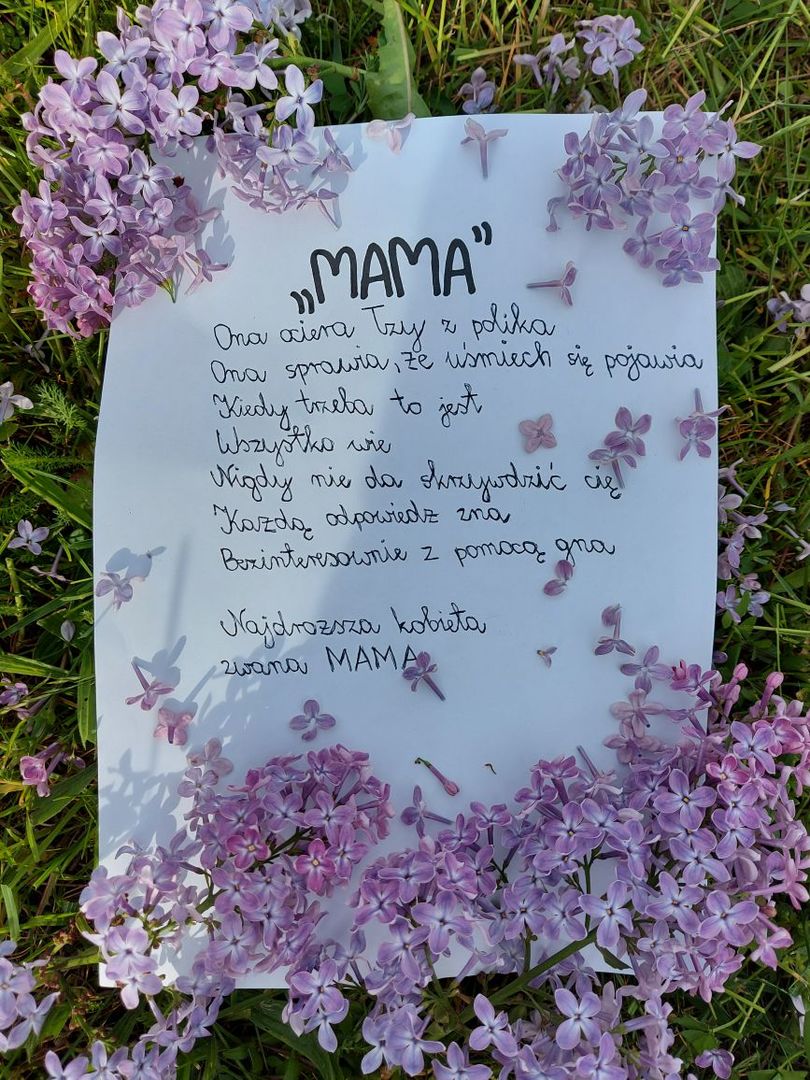 „MAMA”
Ona ociera łzy z polika
Ona sprawia, że uśmiech się pojawia
Kiedy trzeba to jest
Wszystko wie
Nigdy nie da skrzywdzić cię
Każdą odpowiedz zna
Bezinteresownie z pomocą gna
Najdroższa kobieta
zwana MAMA